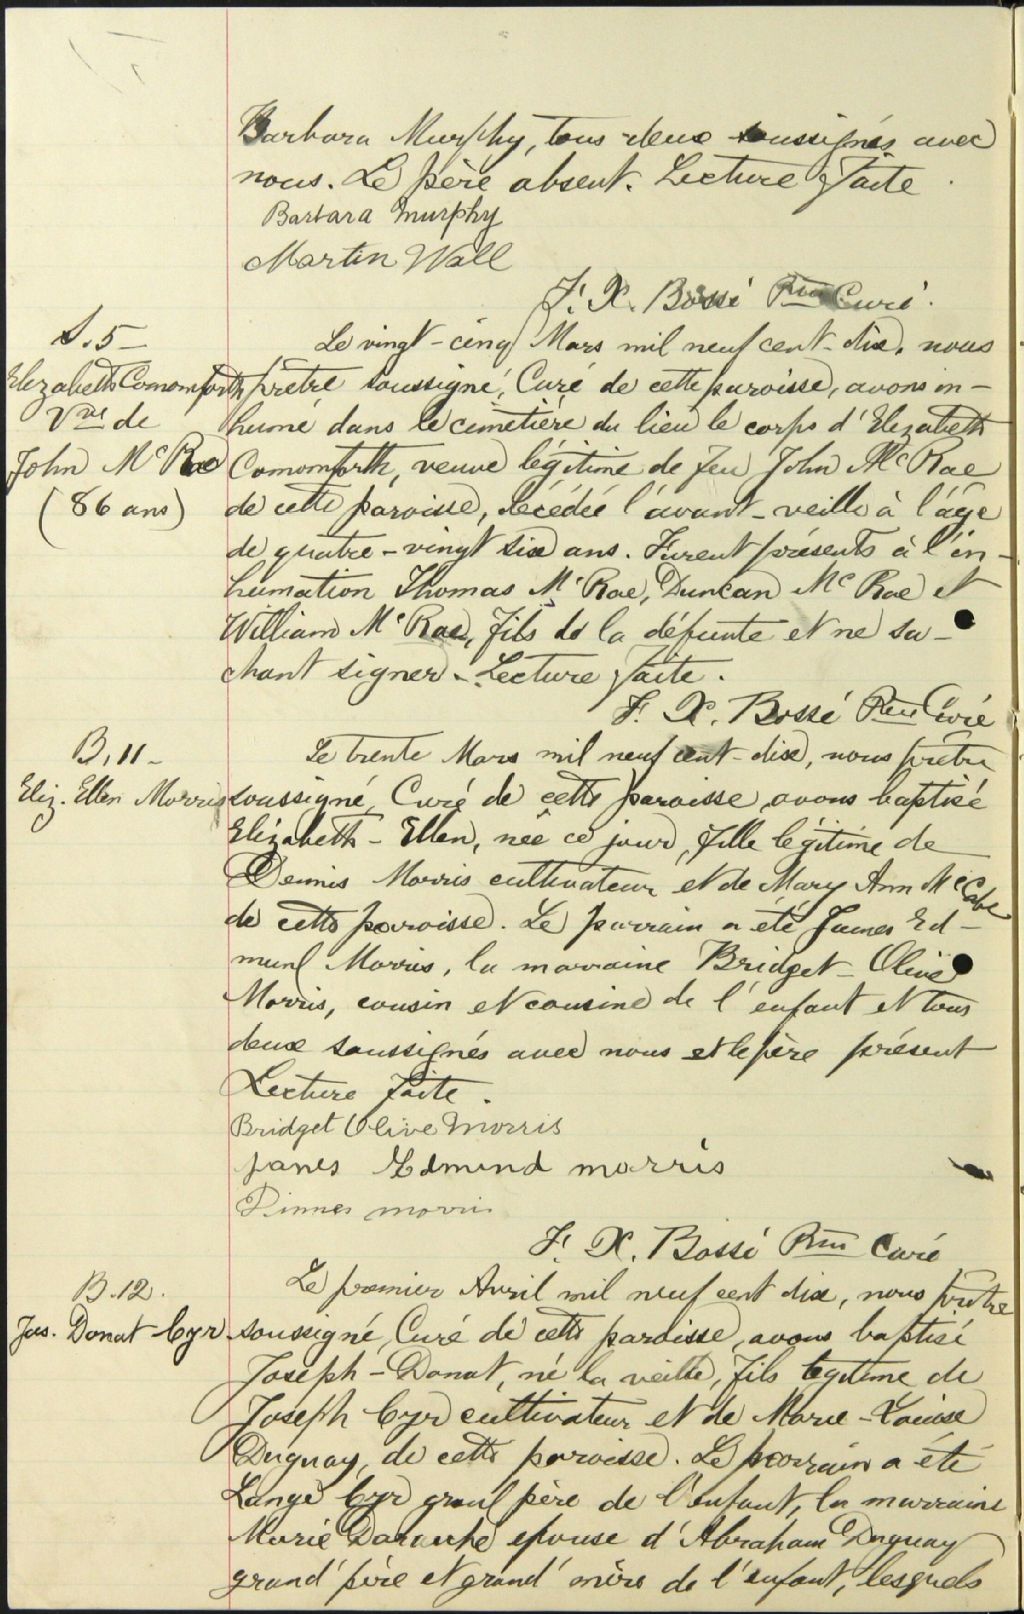 Barbara Murphy, tous deux soussignés avec
nous. Le père absent. Lecture faite.
Barbara Murphy
Martin Wall
F. X. Bossé Ptre Curé.
S. 5 -
Elizabeth Comomforth
Vve de
John McRae
(86 ans)
Le vingt-cinq Mars mil neuf cent-dix, nous
prêtre soussigné, Curé de cette paroisse, avons in-
humé dans le cimetière du lieu le corps d'Elezabeth
Comomforth, veuve légitime de feu John McRae
de cette paroisse, décédée l'avant-veille à l'âge
de quatre-vingt six ans. Furent présents à l'in-
humation Thomas McRae, Duncan McRae et
William McRae, fils de la défunte et ne sa-
chant signer. Lecture faite.
F. X. Bossé Ptre Curé
B. 11 -
Eliz. Ellen Morris
Le trente Mars mil neuf cent-dix, nous prêtre
soussigné, Curé de cette paroisse avons baptisé
Elizabeth-Ellen, née ce jour, fille légitime de
Dennis Morris cultivateur et de Mary Ann McCabe
de cette paroisse. Le parrain a été James Ed-
mund Morris, la marraine Bridget-Olive
Morris, cousin et cousine de l'enfant et tous
deux soussignés avec nous et le père présent
Lecture faite.
Bridget Olive Morris
James Edmund morris
Dinnes morris
F. X. Bossé Ptre Curé
B. 12.
Jos. Donat Cyr
Le premier Avril mil neuf cent dix, nous prêtre
soussigné, Curé de cette paroisse, avons baptisé
Joseph-Donat, né la veille, fils légitime de
Joseph Cyr cultivateur et de Marie-Louise
Duguay, de cette paroisse. Le parrain a été
Lange Cyr grand père de l'enfant, la marraine
Marie épouse d'Abraham Duguay
grand'père et grand'mère de l'enfant, lesquels